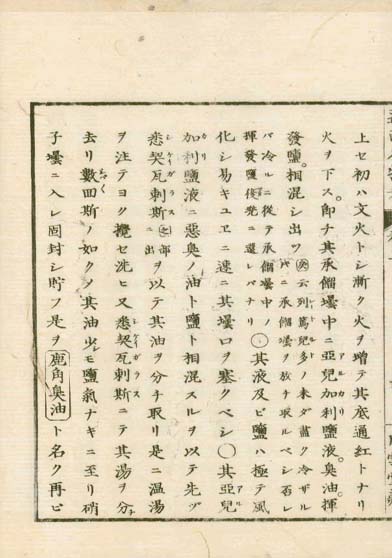 上セ初ハ文火トシ漸ク火ヲ增テ其底通紅トナリ
火ヲ下ス。即チ其承餾壜中ニ亞兒加利鹽液。臭油。揮
發鹽。相混シ出ツ
云列篤兒多ノ未ダ盡ク冷ザル
ニ承餾壜ヲ放チ取ルベシ否レ
バ冷ルニ從テ承餾壜中ノ
揮發鹽復発ニ還レバナリ
〇其液及ビ鹽ハ極テ風
化シ易キユヱニ速ニ其壜口ヲ塞クベシ〇其亞兒
加利鹽液ニ惡臭ノ油ト鹽ト相混スルヲ以テ先ヅ
悉契瓦剌斯ニ出ヲ以テ其油ヲ分チ取リ是ニ温湯
ヲ注テヨク攪セ洗ヒ又悉契瓦剌斯ニテ其湯ヲ分
去リ數回斯ノ如クメ其油少シモ鹽氣ナキニ至リ硝
子壜ニ入レ固封シ貯フ是ヲ鹿角臭油ト名ク再ビ